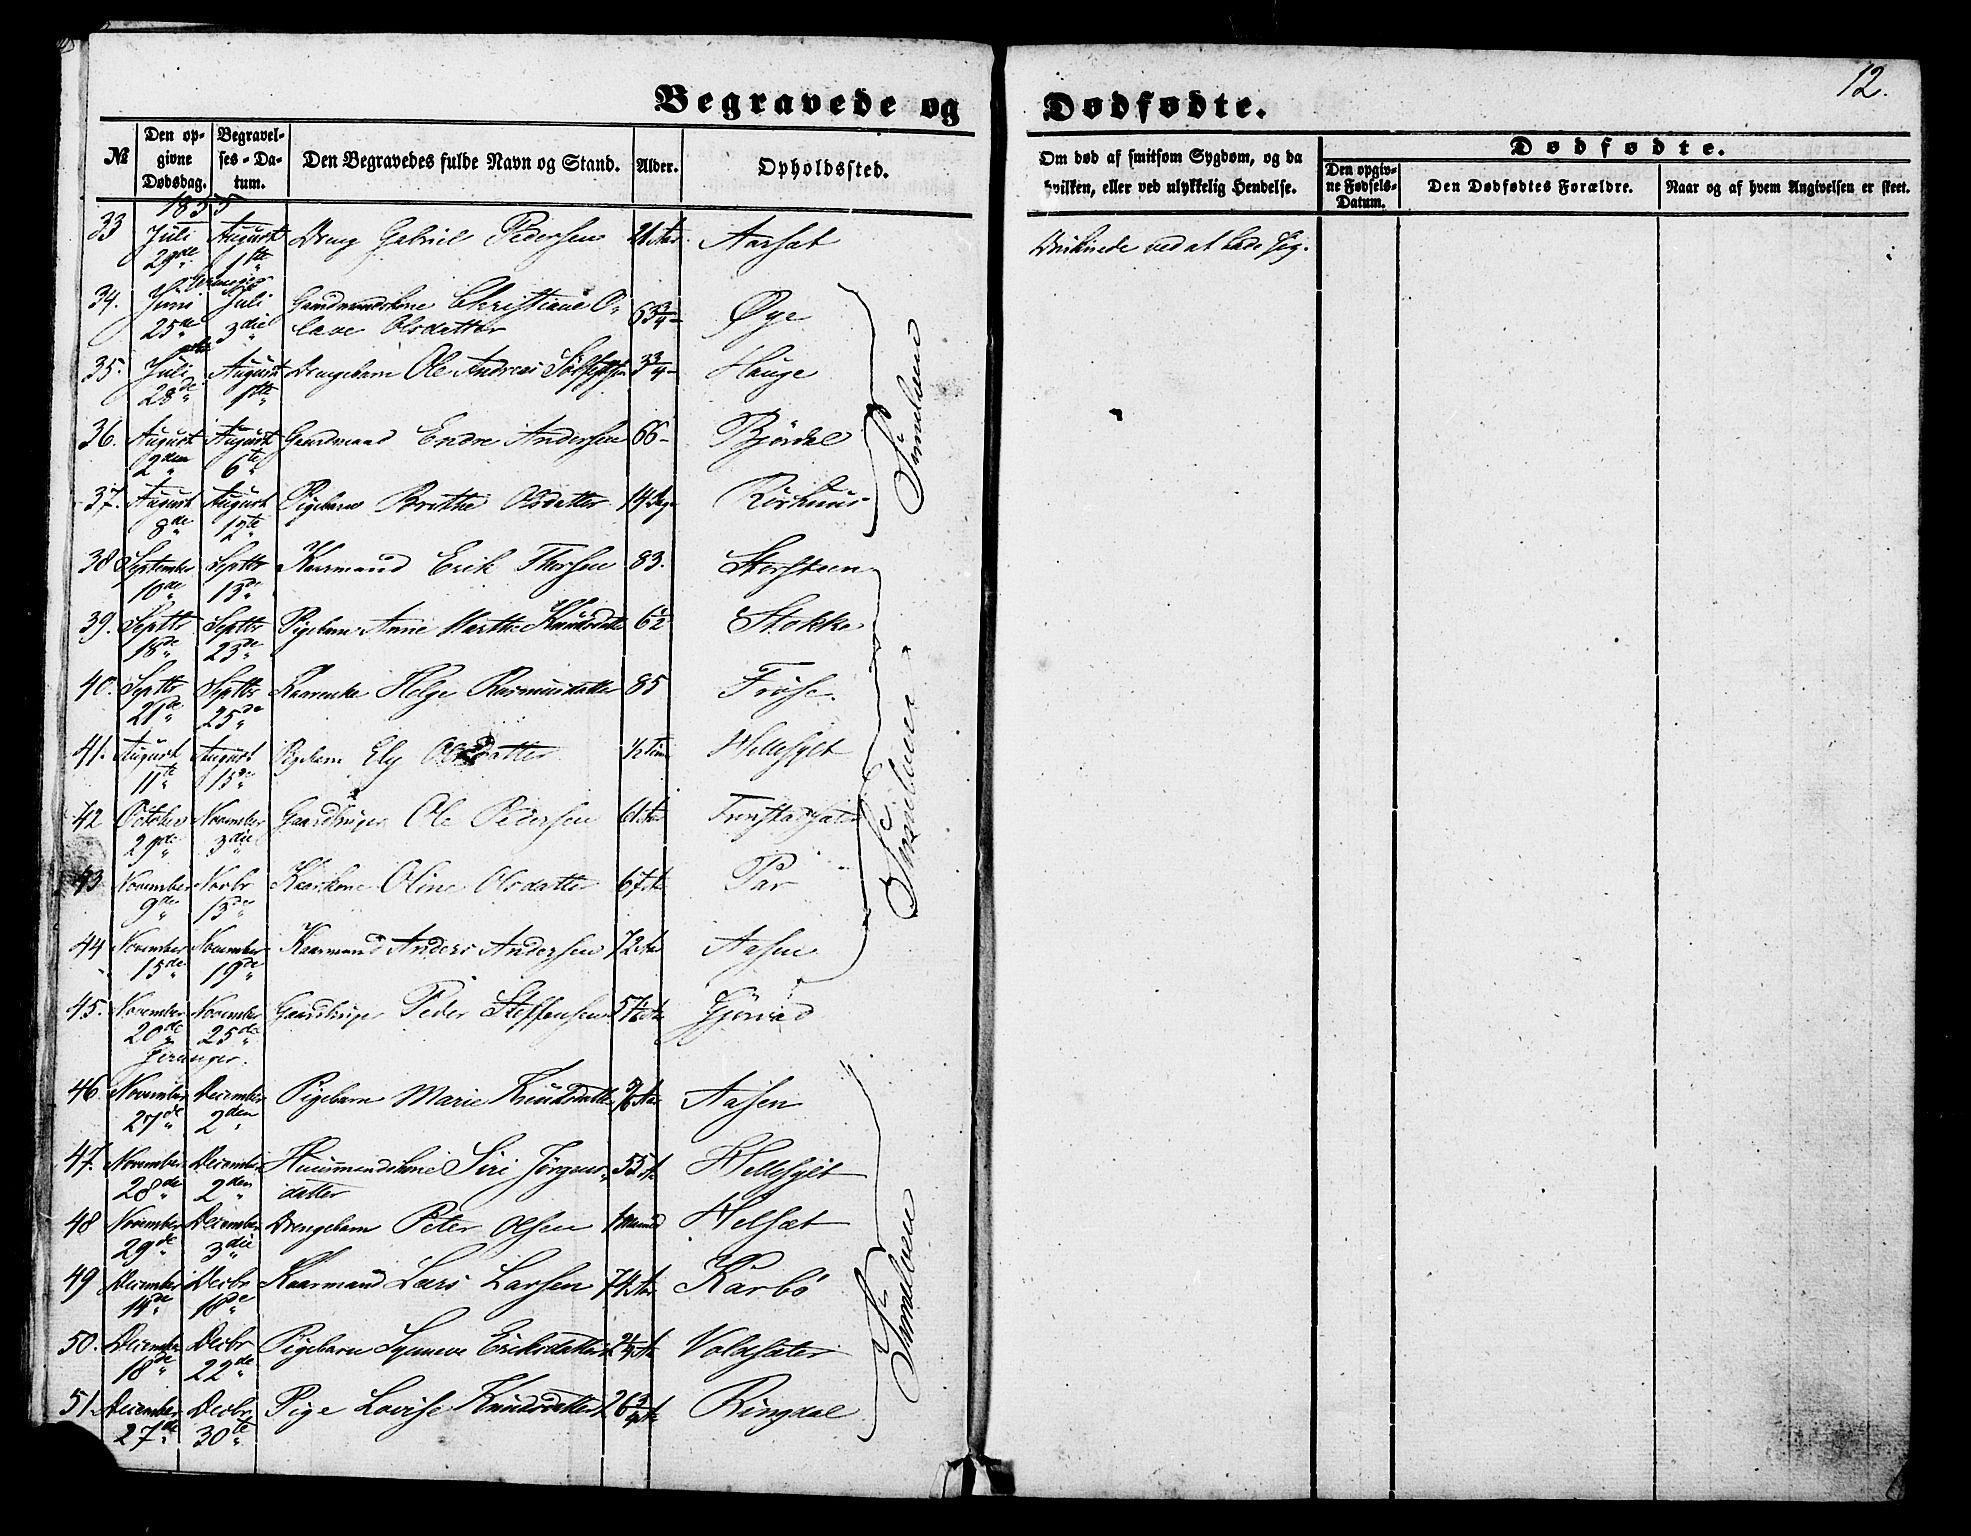 12.
Begravede og Dødfødte.
№ Den opgivne Dødsdag. Begravelses-Datum. Den Begravedes fulde Navn og Stand. Alder. Opholdssted. Om død af smitsom Sygdom, og da hvilken, eller ved ulykkelig Hendelse. Dødfødte. Den opgivne Fødsels-Datum. Den Dødfødtes Forældre. Naar og af hvem Angivelsen er skeet.
1855
33 Juli August Dreng Gabriel Pedersen Aarsæt Druknede ved at bade sig.
29de 1ste
34. Juni Juli Gaardmandskone Christiane O-
25de 3die lave Olsdatter 63 3/4 Øye
35. Juli August Drengebarn Ole Andreas 3 3/4 Hauge
28de 1ste
36. August August Gaardmand Endre Andersen 66 Bjørdal
2den 6te
37. August August Pigebarn Brithe Olsdatter 14 Dage Rørhuus
8de 12te
Sunelven
38 September Septbr Kaarmand Erik Thorsen 83. Storsteen
10de 13de
39. Septbr Septbr Pigebarn Anne Marthe Knudsdatter 6 1/2 Stokke
18de 23de
40. Septbr Septbr Kaarenke Helge Rasmusdatter 85 Frøise
21de 25de
41. August August Pigebarn Ely Olsdatter 1/2 Time Hellesylt
11te 15de
42 October November Gaardbruger Ole Pedersen 61 Aar
29de 3die
43 November Novbr Kaarkone Oline Olsdatter 67 Aar
9de 13de
44 November November Kaarmand Anders Andersen 72 Aar Aasen
15de 19de
Sunelven
45. November November Gaardbruger Peder Steffensen Gjørvad
20de 25de
Geiranger.
46. November December Pigebarn Marie Knudsdatter Aasen
27de 2den
47. November December Huusmandskone Siri Jørgens- 55 Aar Hellesylt
28de 2den datter
48 November December Drengebarn Peter Olsen 1 Maaned Helsæt
29de 3die
49 December Decbr Kaarmand Lars Larsen 74 Aar Karbø
14de 18de
50. December Decbr Pigebarn Synneve Eriksdatter Voldsæter
18de 22de
51. December Decbr Pige Lovise Knudsdatter 26 3/4 Aar Ringdal
27de 30te
Sunelven